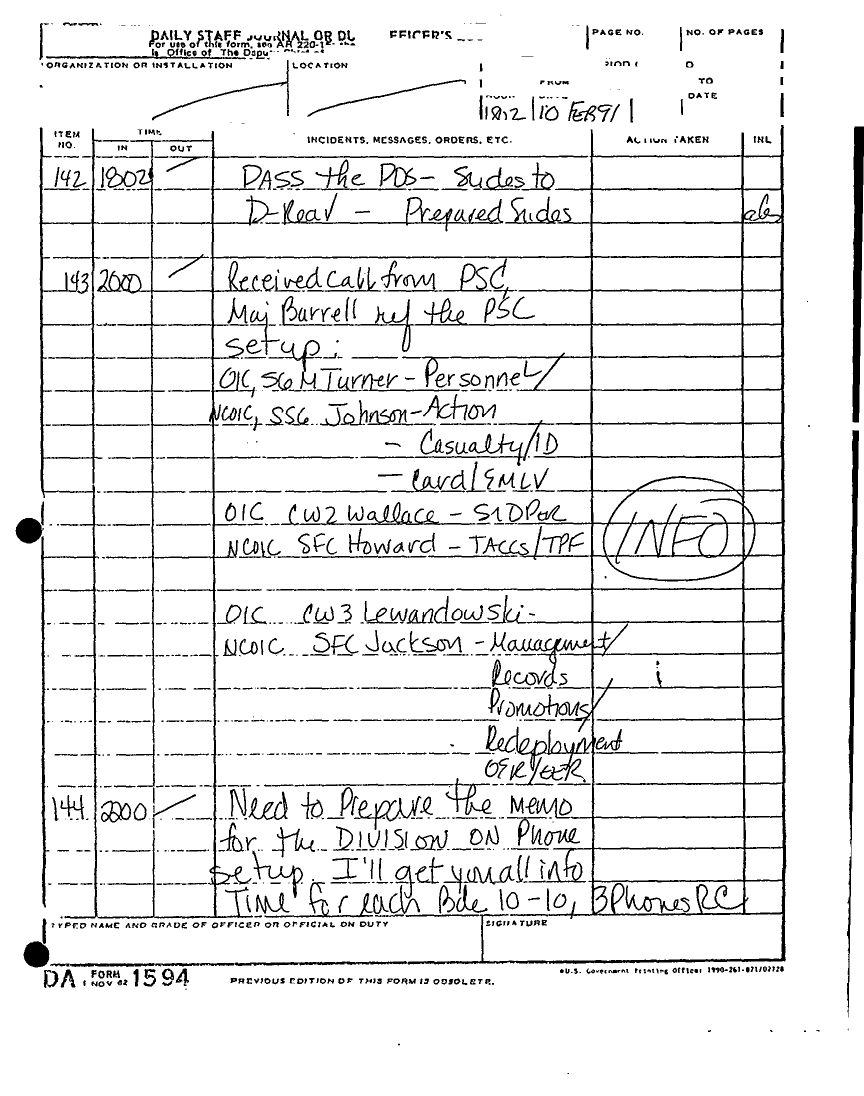 DAILY STAFF JOURNAL OR DU
For use of this form, see AR 220-1
is Office of The Depu
PAGE NO.
NO. OF PAGES
ORGANIZATION OR INSTALLATION
LOCATION
FROM
TO
DATE
1812 10 FEB91
ITEM NO.
TIME
IN
OUT
INCIDENTS, MESSAGES, ORDERS, ETC.
ACTION TAKEN
INL
142 1802 PASS the PDS-
D-Rear - Prepared
143 2000 Received Call from PSC,
Maj Burrell ref the PSC
setup:
OIC, SGM Turner - Personnel/
NCOIC, SSG Johnson - Action
- Casualty/ID
- Card/EMLV
OIC CW2 Wallace - SIDPER
NCOIC SFC Howard - TACCS/TPF
INFO
OIC CW3 Lewandowski -
NCOIC SFC Jackson - Management/
Records
Promotions/
Redeployment
OER/EER
144 2200 Need to Prepare the memo
for the DIVISION ON Phone
setup. I'll get you all info
Time for each Bde 10-10, 3 Phones RC
TYPED NAME AND GRADE OF OFFICER OR OFFICIAL ON DUTY
SIGNATURE
DA FORM 1 NOV 62 1594
PREVIOUS EDITION OF THIS FORM IS OBSOLETE.
U.S. Government Printing Office: 1990-261-871/02728